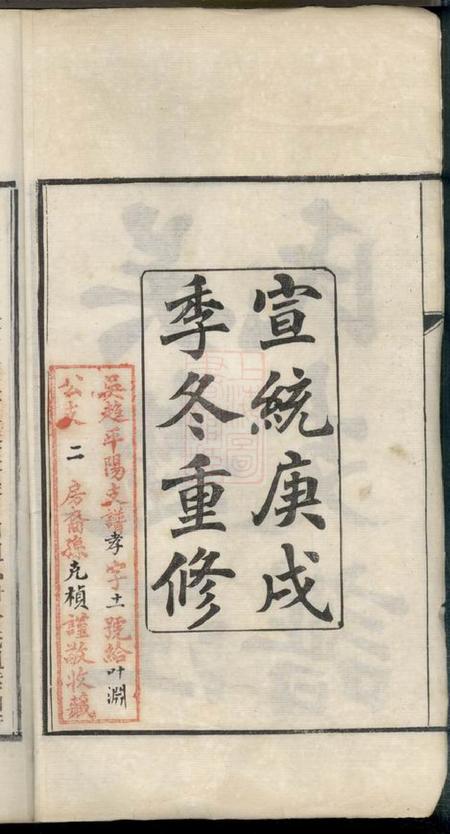 宣統庚戌
季冬重修
吳趨平陽支譜孝字土號給叶淵
公支二房裔孫克楨謹敬收藏